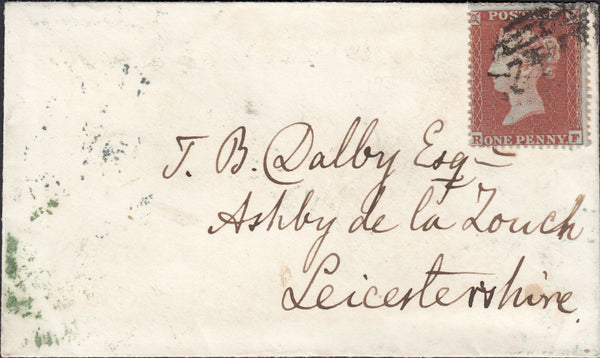 POSTAGE
R ONE PENNY F
T. B. Dalby Esq
Ashby de la Zouch
Leicestershire.